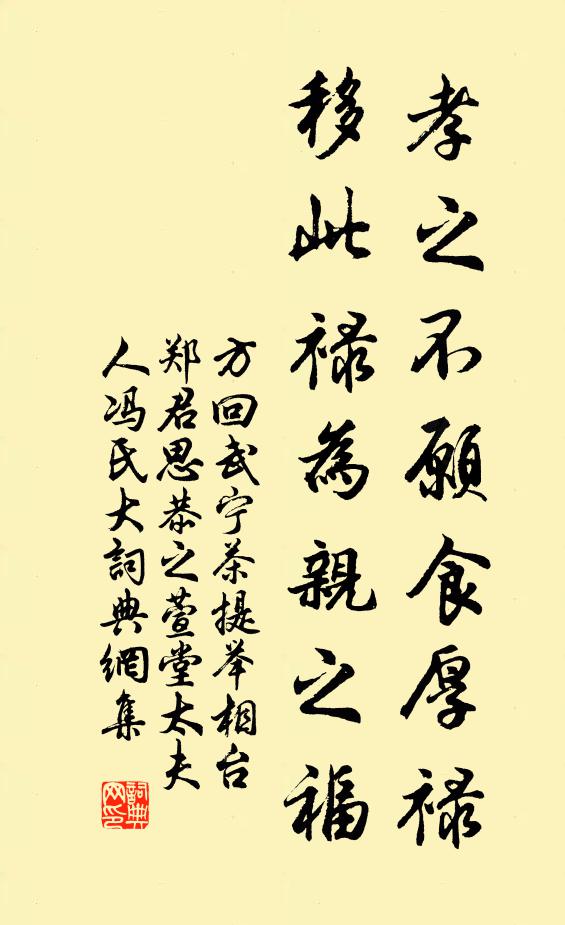 孝之不願食厚禄
移此禄為親之福
方回武宁茶提举相台
郑君思恭之萱堂太夫
人冯氏大詞典網集
詞典网印